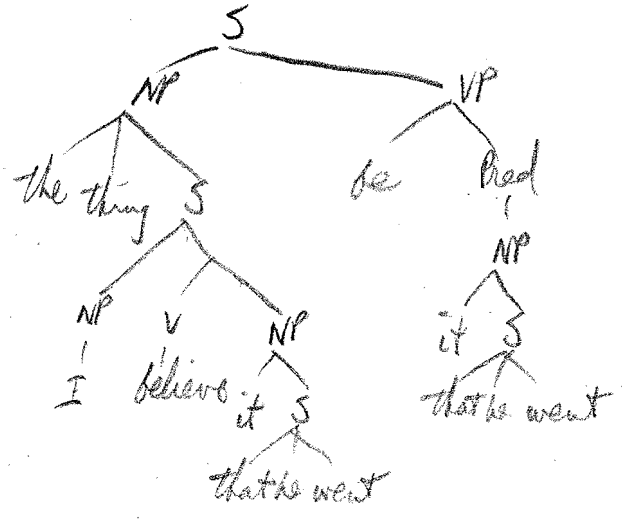 S
NP VP
the thing S be Pred
NP
NP V NP it S
I believe it S that he went
that he went